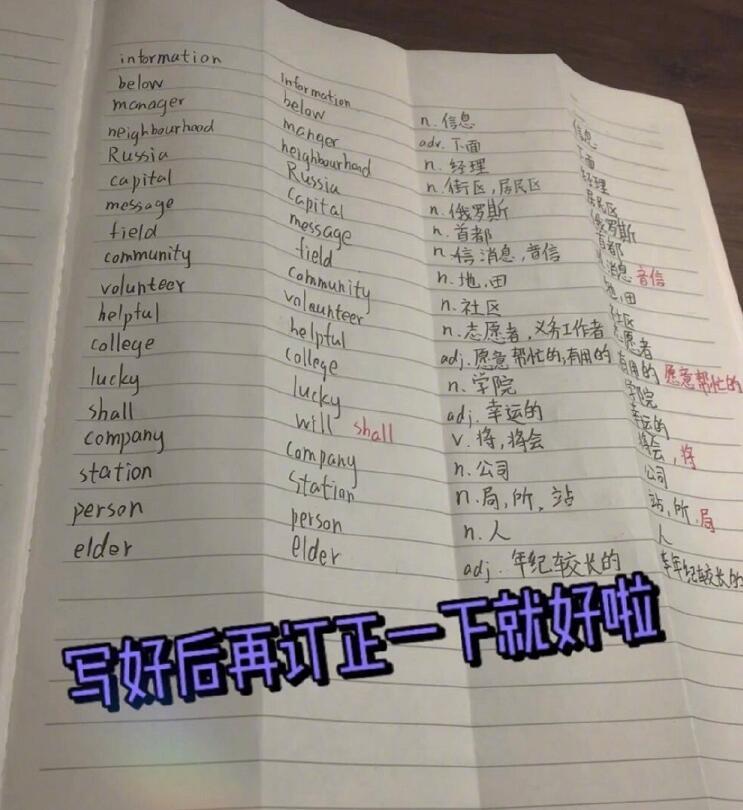 information Information n. 信息 信息
below below adv. 下面 下面
manager manger n. 经理 经理
neighbourhood neighbourhood n. 街区,居民区 居民区
Russia Russia n. 俄罗斯 俄罗斯
capital Capital n. 首都 首都
message message n. 信消息,音信 消息 音信
field field n. 地,田 地,田
community Community n. 社区 社区
volunteer volaunteer n. 志愿者,义务工作者 志愿者
helpful helpful adj. 愿意帮忙的,有用的 有用的 愿意帮忙的
college college n. 学院 学院
lucky lucky adj. 幸运的 幸运的
shall will shall v. 将,将会 将会,将
company company n. 公司 公司
station station n. 局,所,站 站,所,局
person person n. 人 人
elder elder adj. 年纪较长的 年纪较长的
写好后再订正一下就好啦